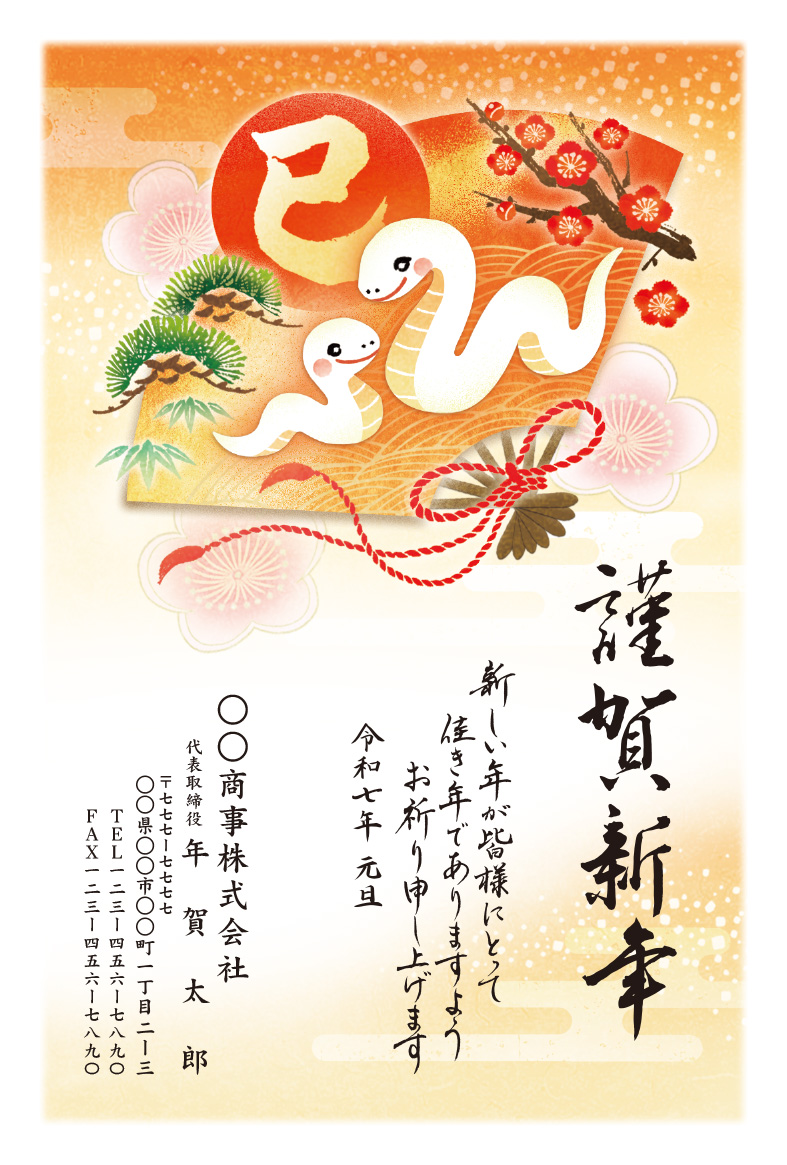 巳
謹賀新年
新しい年が皆様にとって
佳き年でありますよう
お祈り申し上げます
令和七年 元旦
〇〇商事株式会社
代表取締役 年賀太郎
〒七七七ー七七七七
〇〇県〇〇市〇〇町一丁目二ー三
TEL一二三ー四五六ー七八九〇
FAX一二三ー四五六ー七八九〇